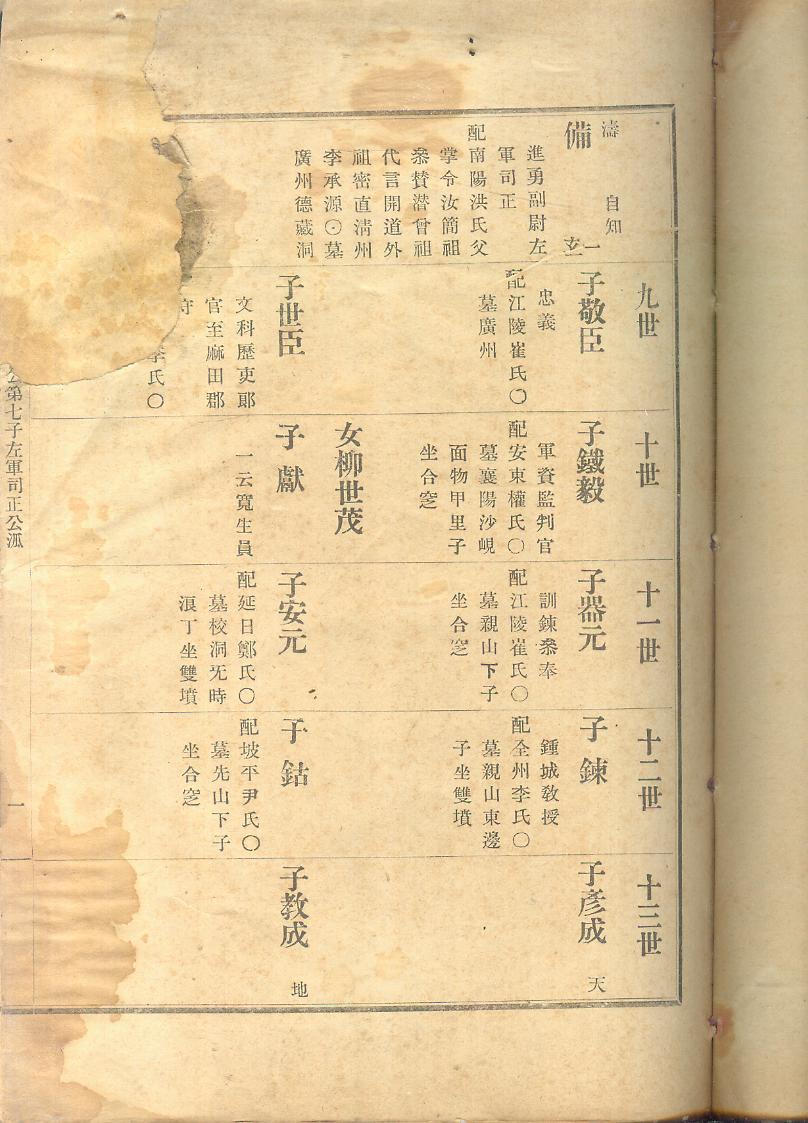 濤
自知
備
一玄
進勇副尉左
軍司正
配南陽洪氏父
掌令汝簡祖
叅賛潜曾祖
代言開道外
祖密直淸州
李承源〇墓
廣州德藏洞
九世
子敬臣
忠義
配江陵崔氏〇
墓廣州
子世臣
文科歷吏郞
官至麻田郡
守
李氏〇
十世
子鐵毅
軍資監判官
配安東權氏〇
墓襄陽沙峴
面物甲里子
坐合窆
女柳世茂
子獻
一云寬生員
十一世
子器元
訓鍊叅奉
配江陵崔氏〇
墓親山下子
坐合窆
子安元
配延日鄭氏〇
墓校洞旡時
洞丁坐雙墳
十二世
子鍊
鍾城敎授
配全州李氏〇
墓親山東邊
子坐雙墳
子鈷
配坡平尹氏〇
墓先山下子
坐合窆
十三世
子彦成
天
子敎成
地
公第七子左軍司正公派
一